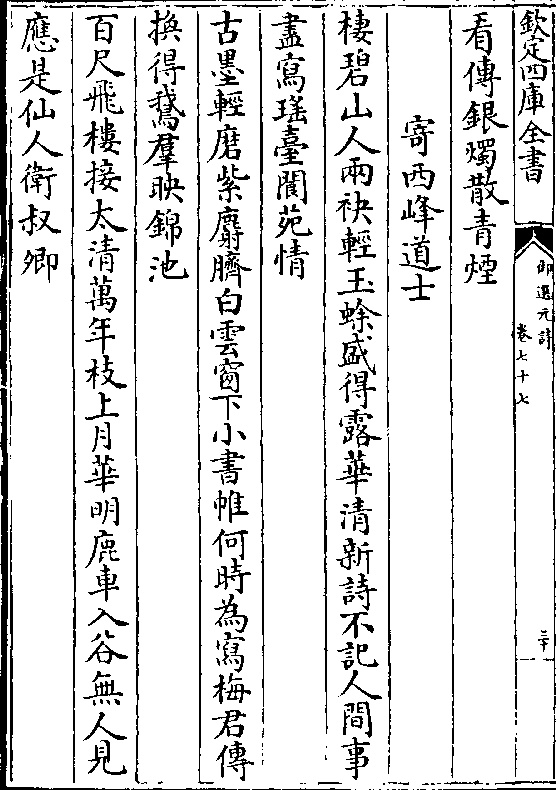 欽定四庫全書
御選元詩
卷七十七
三十
看傳銀燭散青煙
寄西峰道士
棲碧山人兩袂輕玉蜍盛得露華清新詩不記人間事
盡寫瑤臺閬苑情
古墨輕磨紫麝臍白雲窗下小書帷何時為寫梅君傳
換得鵞羣映錦池
百尺飛樓接太清萬年枝上月華明鹿車入谷無人見
應是仙人衛叔卿